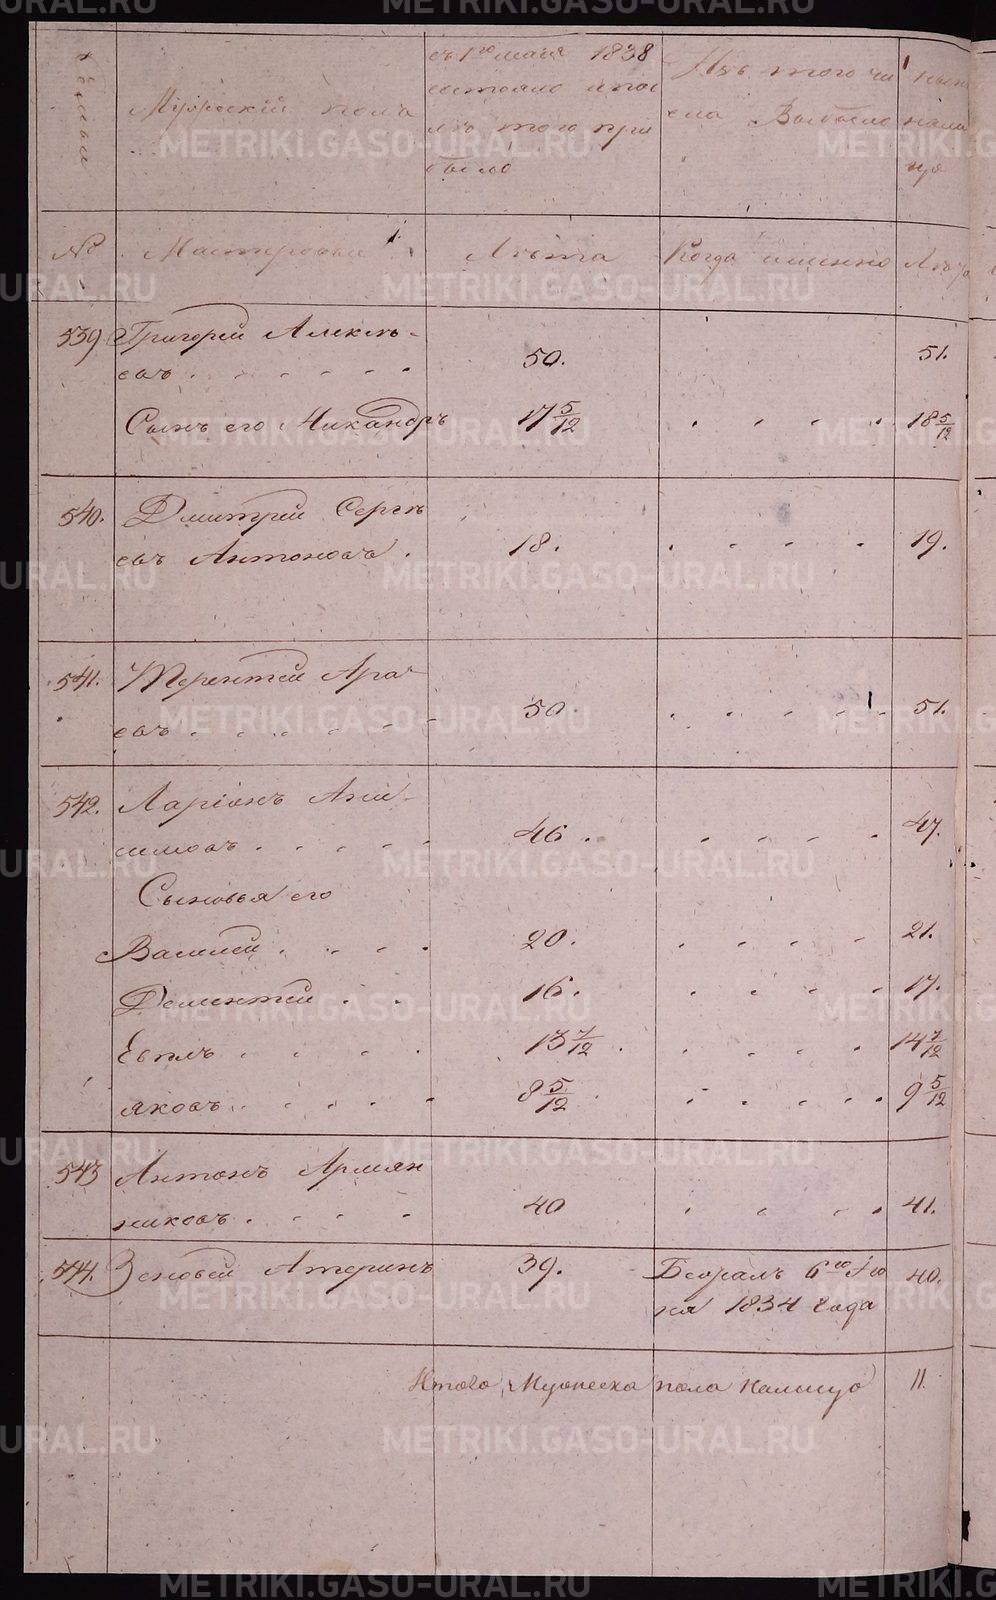 METRIKI.GASO-URAL.RU
Семьи
Мужескій полъ
съ 1го мая 1838
состояло и пос
лѣ того при
было
Изъ того чи
сла Выбыло
ныне
нали
цо
№
Мастеровые
Лѣта
Когда именно
Лѣта
539. Григорей Алексѣ-
евъ . . . . . 50. 51.
Сынъ его Никандръ 17 5/12 . . . . 18 5/12
540. Дмитрей Сергѣ
евъ Антоновъ . 18. . . . . 19.
541. Терентей Ара-
евъ . . . . . 50. . . . . 51.
542. Ларіонъ Ани-
симовъ . . . . 46. . . . . 47.
Сыновья его
Василей . . . . 20. . . . . 21.
Дементей . . 16. . . . . 17.
Евплъ . . . . 13 7/12. . . . . 14 7/12
яковъ . . . . . 8 5/12 . . . . 9 5/12
543 Антонъ Армян
никовъ . . . . 40 . . . . 41.
544. Зеновей Атеринъ 39. 40.
1834 Года
Итого Мужеска пола налицо 11.